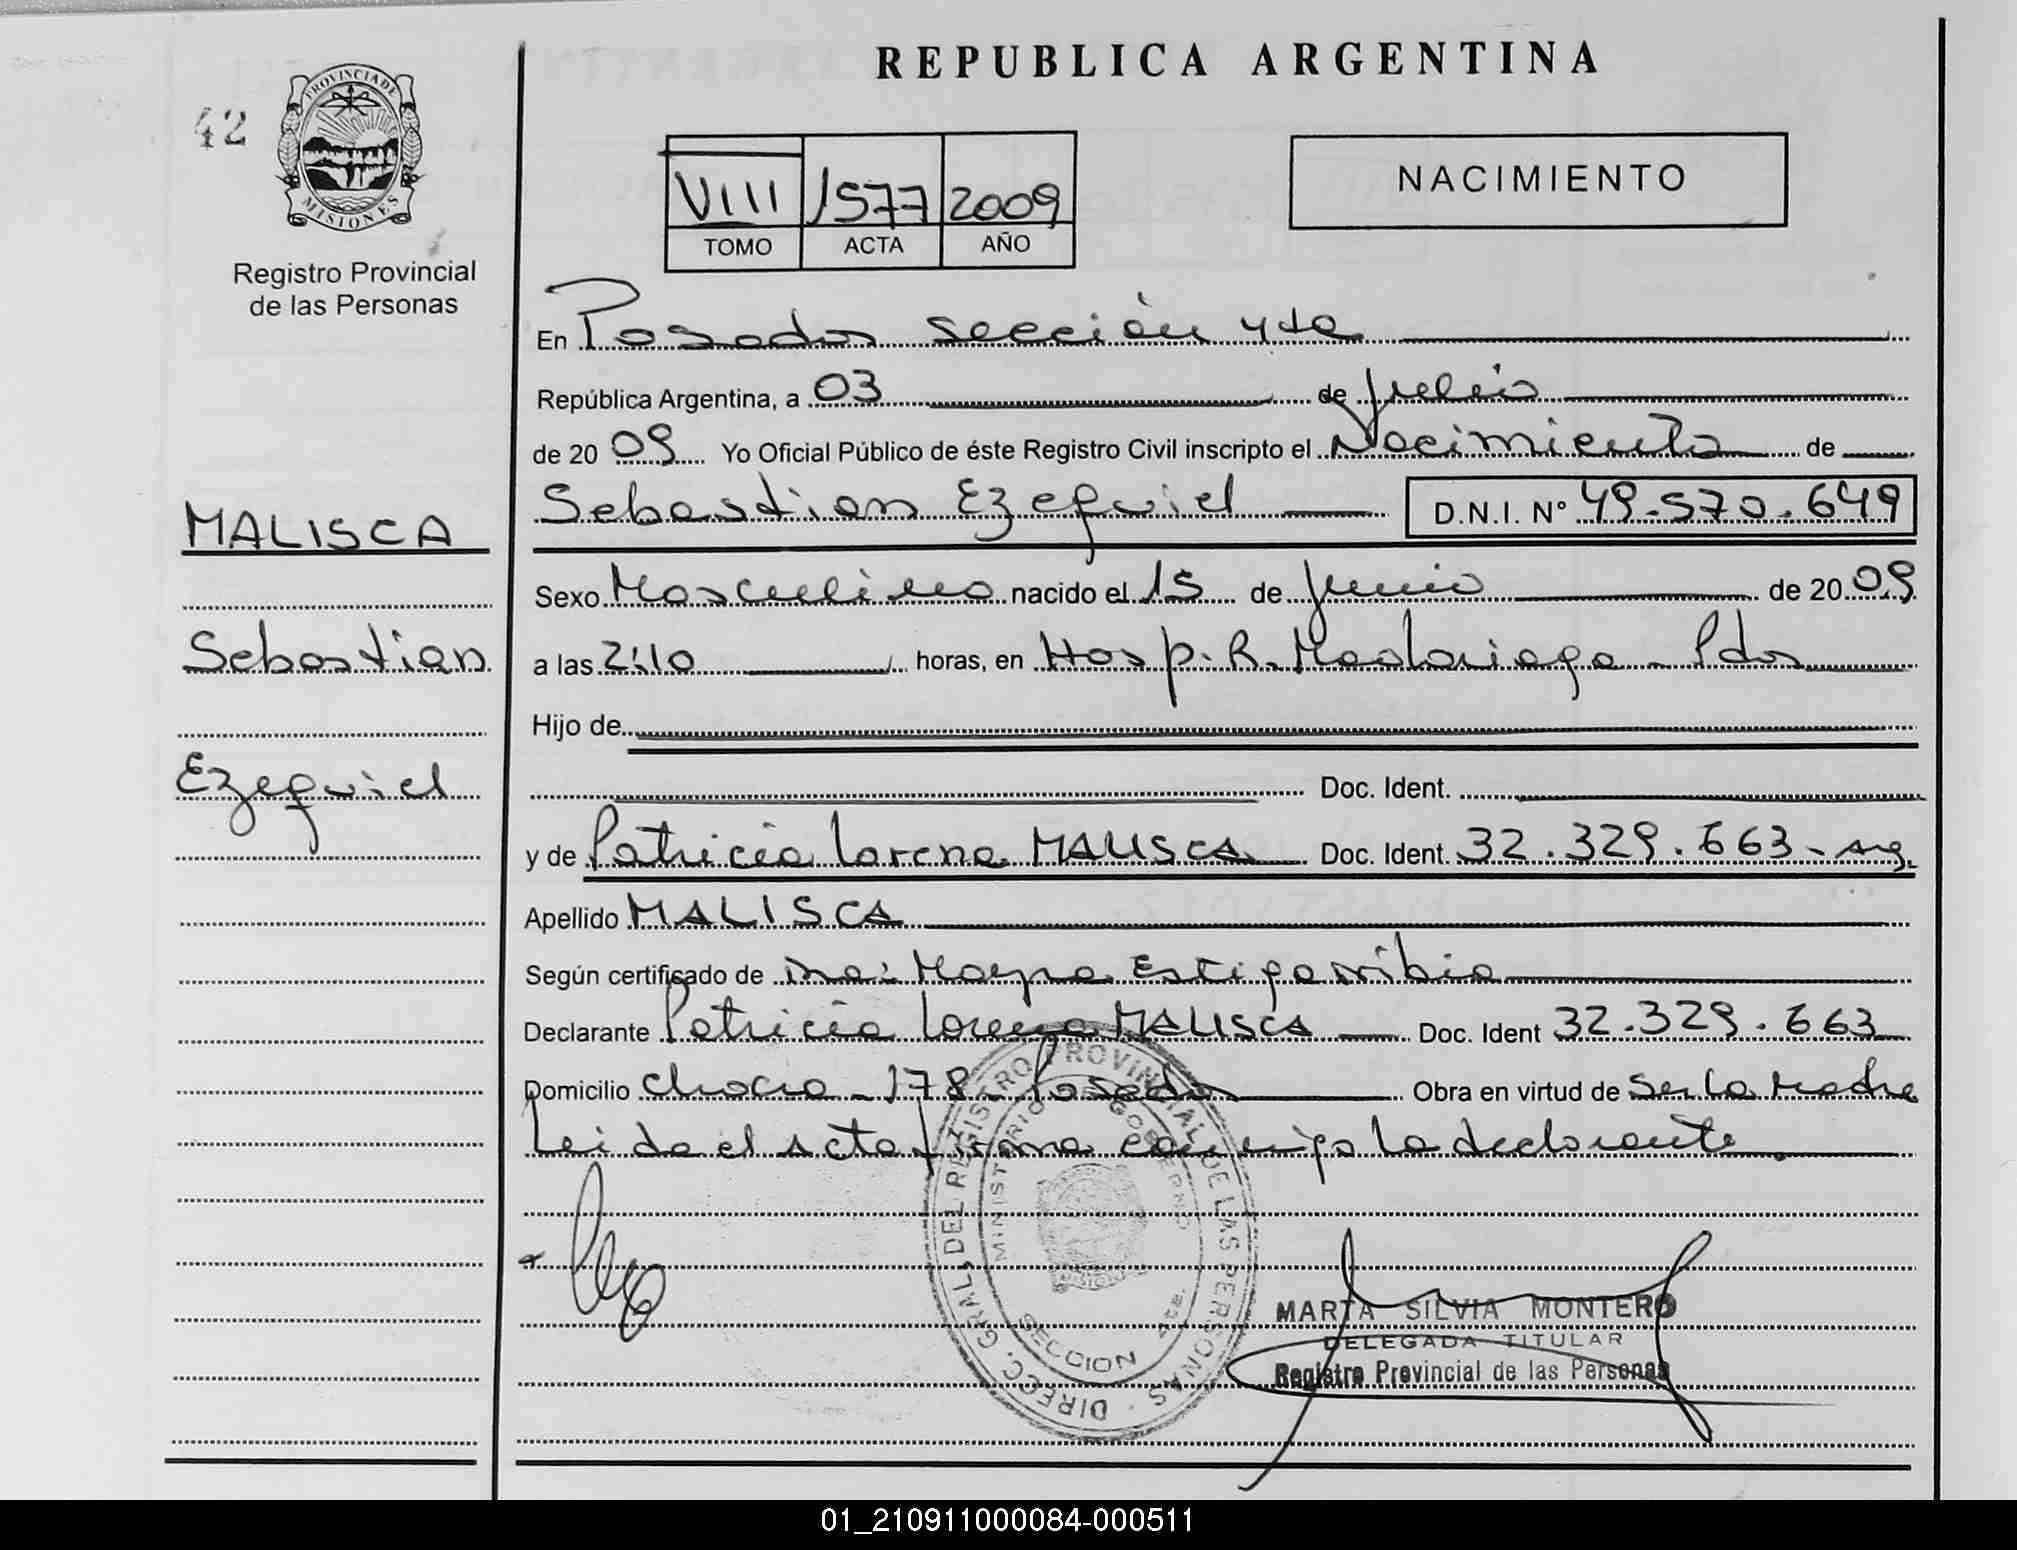 REPUBLICA ARGENTINA
42
PROVINCIA DE
MISIONES
Registro Provincial
de las Personas
VIII 1577 2009
TOMO ACTA AÑO
NACIMIENTO
En Posadas sección 4ta
República Argentina, a 03 de julio
de 2009 Yo Oficial Público de éste Registro Civil inscripto el Nacimiento de
Sebastian Ezequiel D.N.I. Nº 49.570.649
MALISCA
Sebastian
Ezequiel
Sexo Masculino nacido el 15 de junio de 2009
a las 2:10 horas, en Hosp. R. Madariaga - Pdas
Hijo de
Doc. Ident.
y de Patricia Lorena MALISCA Doc. Ident. 32.329.663 - arg.
Apellido MALISCA
Según certificado de Mayra Estigarribia
Declarante Patricia Lorena MALISCA Doc. Ident 32.329.663
Domicilio chacra - 178 - Posadas Obra en virtud de ser la madre
Leida el acta firma conmigo la declarante.
DIRECC. GRAL. DEL REGISTRO PROVINCIAL DE LAS PERSONAS
MINISTERIO DE GOBIERNO
SECCION 4ta.
MARTA SILVIA MONTERO
DELEGADA TITULAR
Registro Provincial de las Personas
01_210911000084-000511